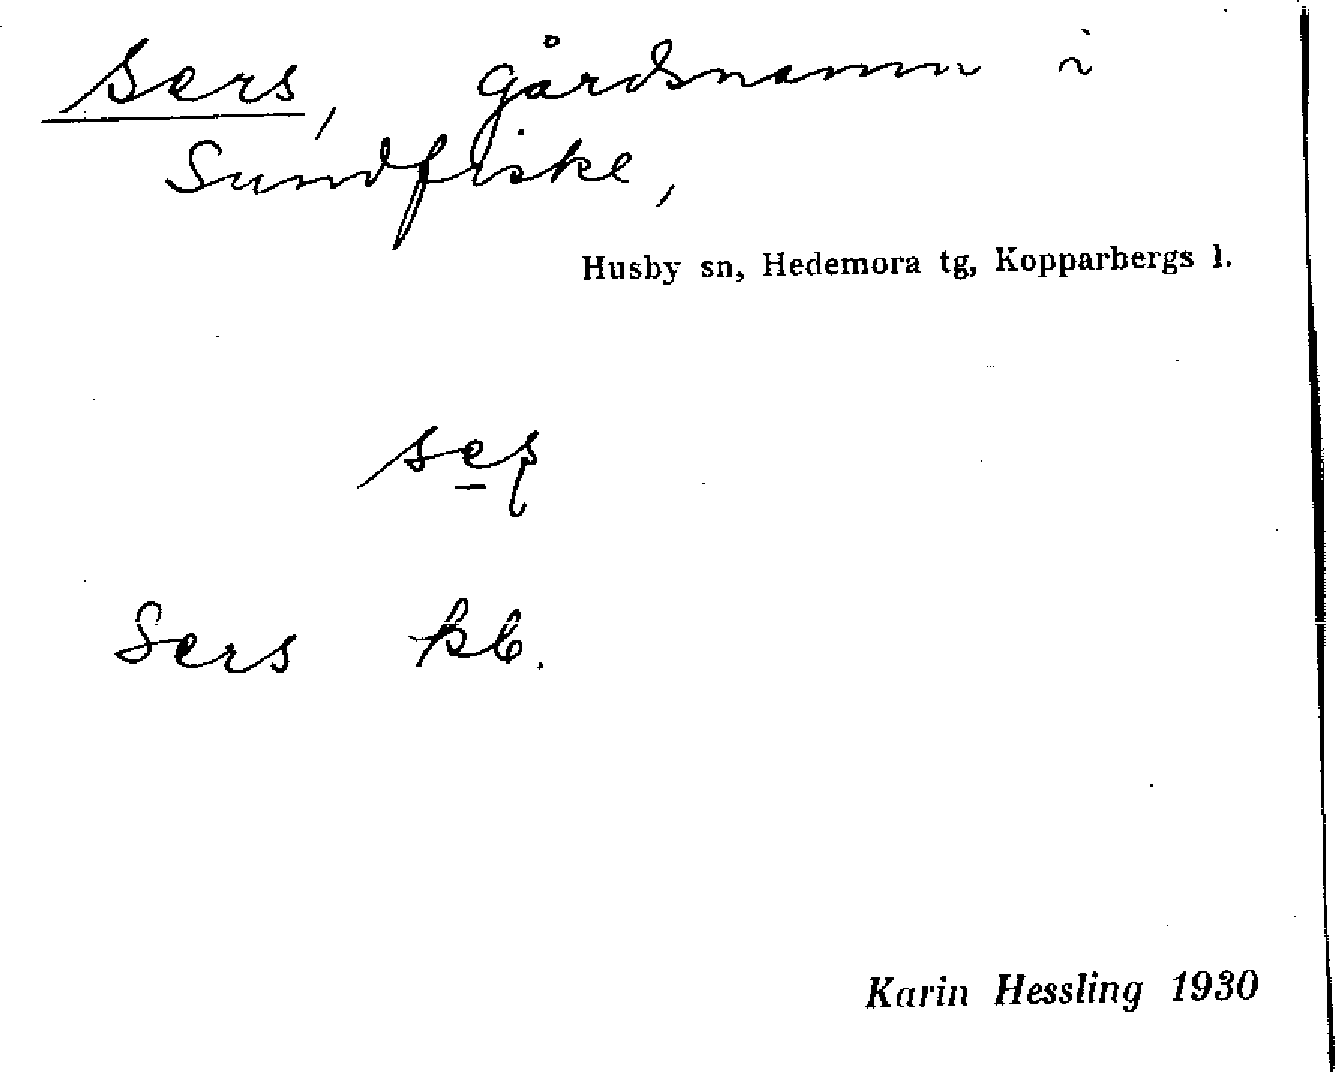 Sers, gårdsnamn i
Sundfiske,
Husby sn, Hedemora tg, Kopparbergs l.
Sers kb.
Karin Hessling 1930